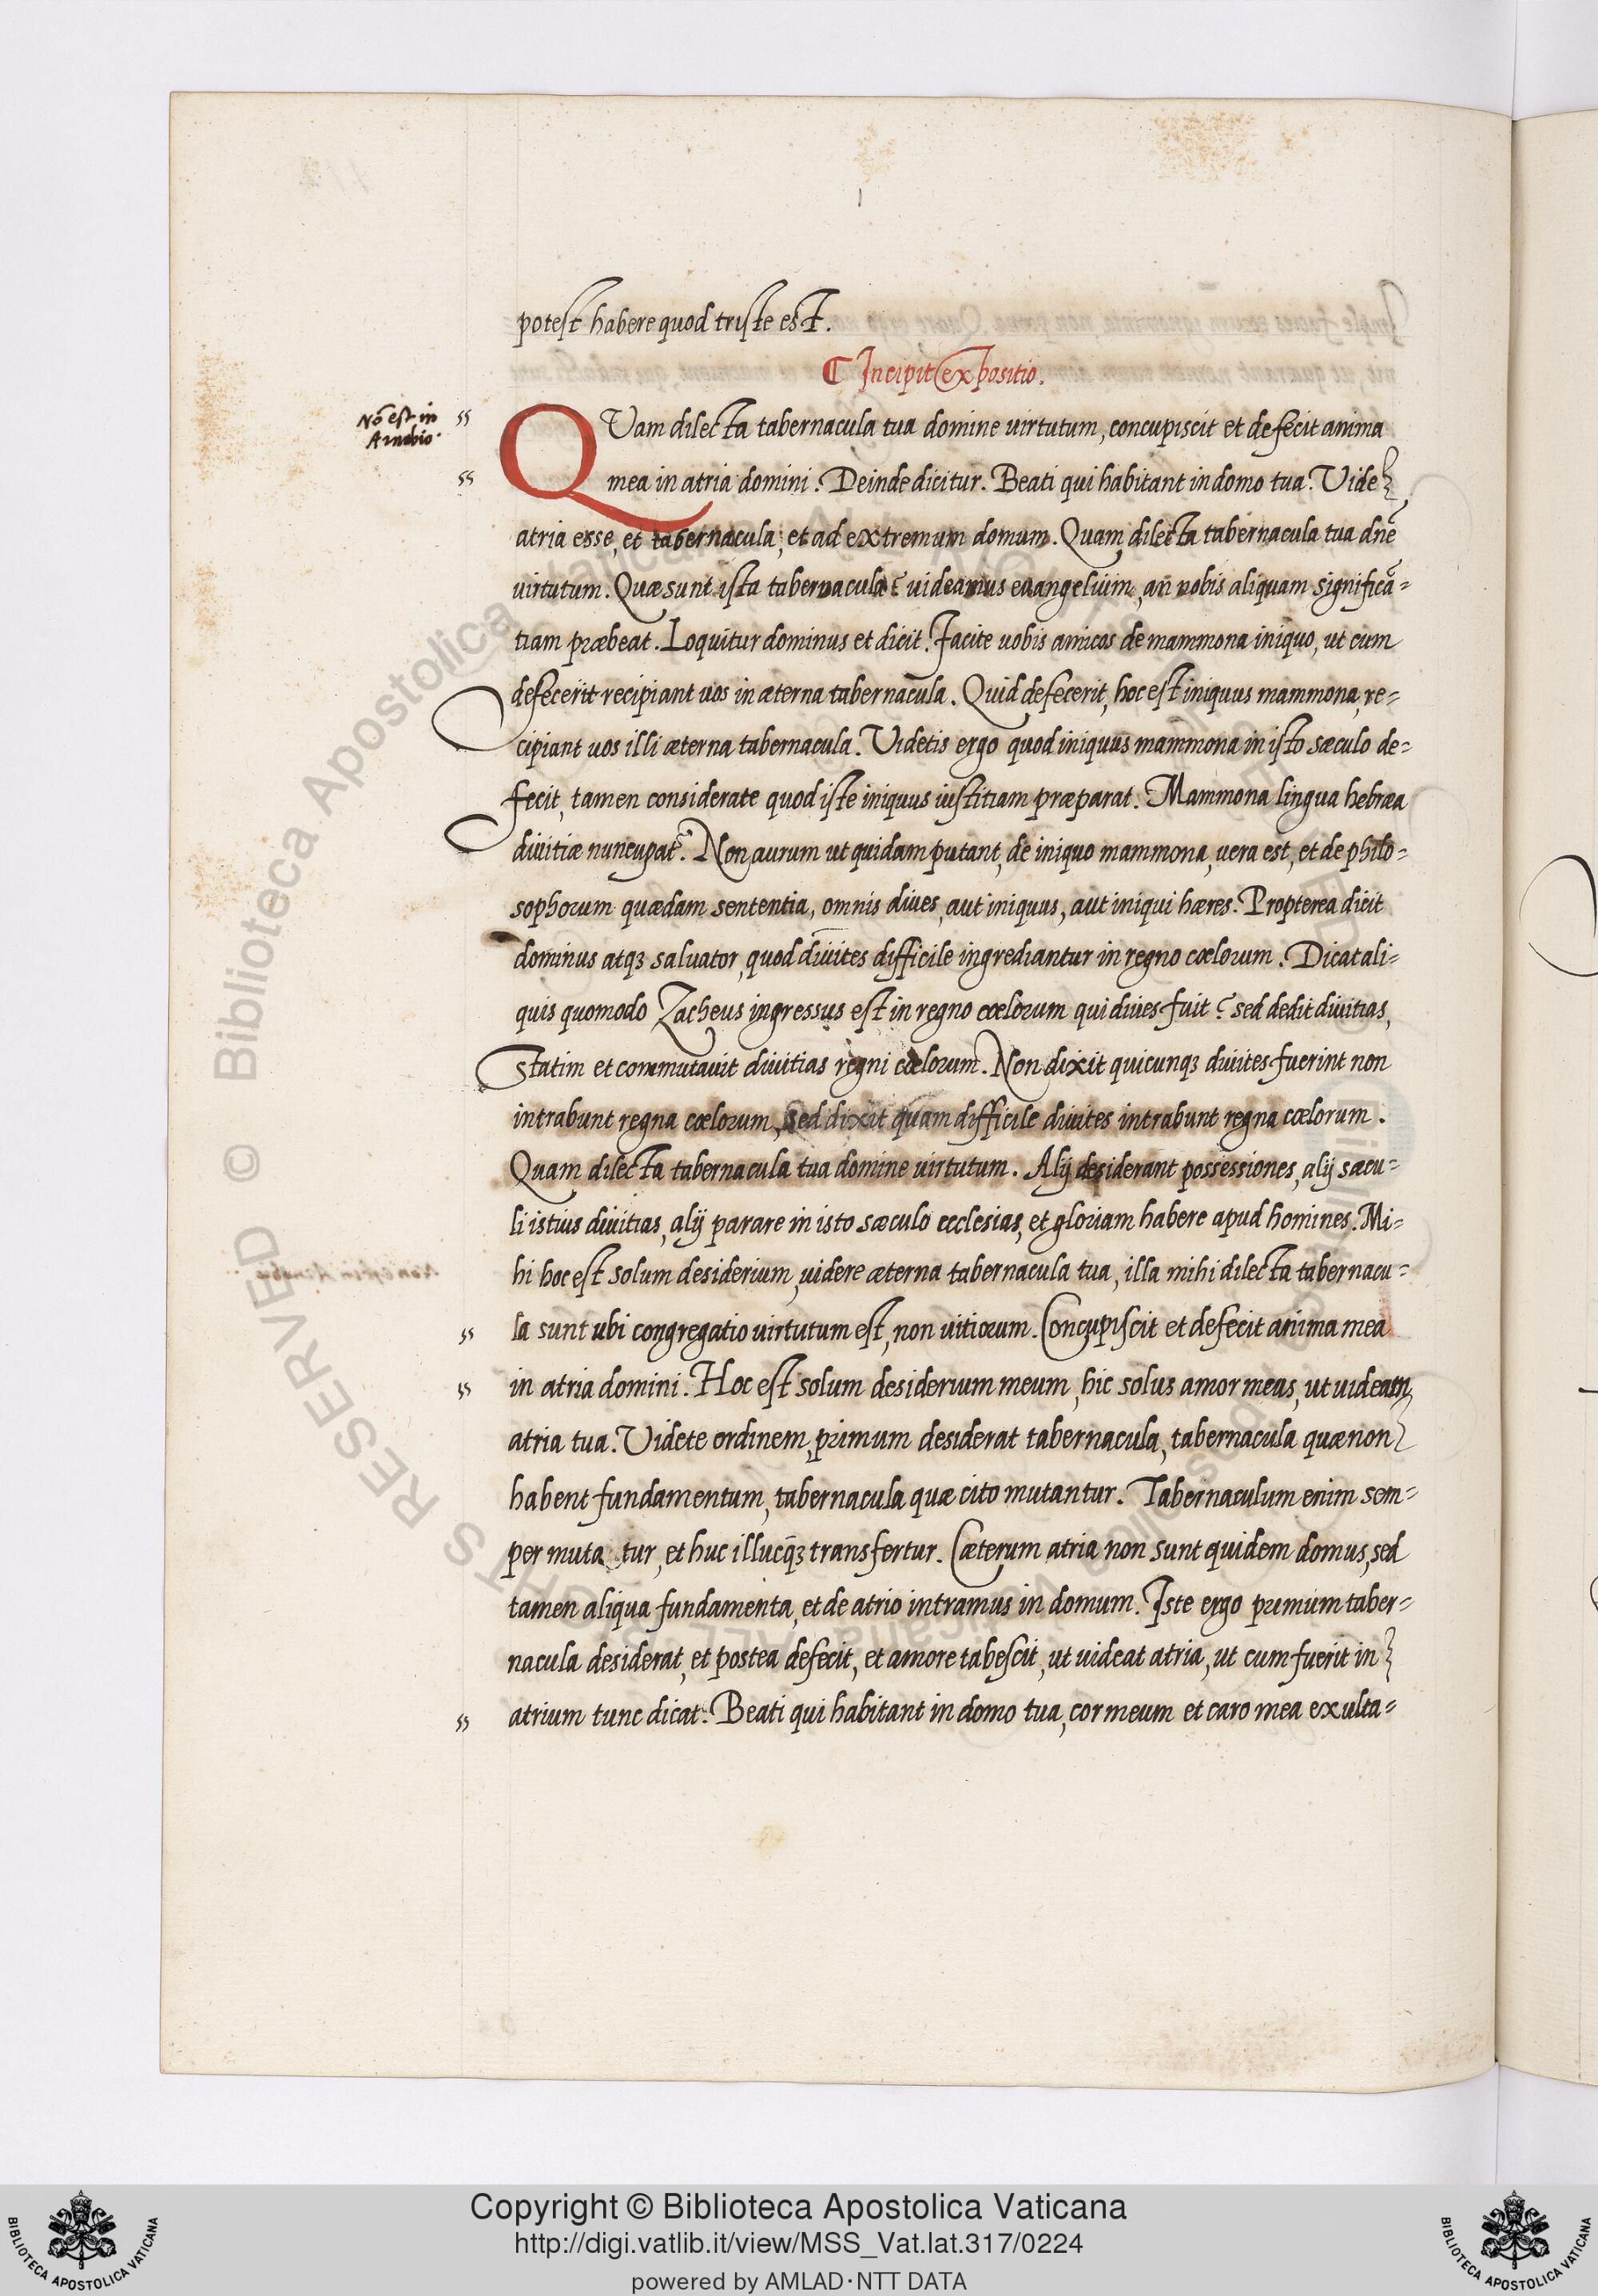 potest habere quod triste est.
¶ Incipit expositio.
Nō est in
Arnobio.
QVam dilecta tabernacula tua domine virtutum, concupiscit et defecit anima
mea in atria domini. Deinde dicitur. Beati qui habitant in domo tua. Vide
atria esse, et tabernacula, et ad extremum domum. Quam dilecta tabernacula tua dn̄e
virtutum. Quæ sunt ista tabernacula? videamus euangelium, an nobis aliquam significā-
tiam præbeat. Loquitur dominus et dicit. Facite uobis amicos de mammona iniquo, ut cum
defecerit recipiant uos in æterna tabernacula. Quid defecerit, hoc est iniquus mammona, re-
cipiant uos illi æterna tabernacula. Videtis ergo quod iniquus mammona in isto sæculo de-
fecit, tamen considerate quod iste iniquus iustitiam præparat. Mammona lingua hebræa
diuitiæ nuncupat᷑. Non aurum ut quidam putant, de iniquo mammona, uera est, et de philo-
sophorum quædam sententia, omnis diues, aut iniquus, aut iniqui hæres. Propterea dicit
dominus atqꝫ saluator, quod diuites difficile ingrediantur in regno cœlorum. Dicat ali-
quis quomodo Zacheus ingressus est in regno cœlorum qui diues fuit? sed dedit diuitias,
statim et commutauit diuitias regni cœlorum. Non dixit quicunqꝫ diuites fuerint non
intrabunt regna cœlorum, sed dixit quam difficile diuites intrabunt regna cœlorum.
Quam dilecta tabernacula tua domine virtutum. Alij desiderant possessiones, alij sæcu-
li istius diuitias, alij parare in isto sæculo ecclesias, et gloriam habere apud homines. Mi-
hi hoc est solum desiderium, videre æterna tabernacula tua, illa mihi dilecta tabernacu-
la sunt ubi congregatio virtutum est, non vitiorum. Concupiscit et defecit anima mea
in atria domini. Hoc est solum desiderium meum, hic solus amor meus, ut uideam
atria tua. Videte ordinem, primum desiderat tabernacula, tabernacula quæ non
habent fundamentum, tabernacula quæ cito mutantur. Tabernaculum enim sem-
per muta tur, et huc illucq̄ꝫ transfertur. Cæterum atria non sunt quidem domus, sed
tamen aliqua fundamenta, et de atrio intramus in domum. Iste ergo primum taber-
nacula desiderat, et postea defecit, et amore tabescit, ut uideat atria, ut cum fuerit in
atrium tunc dicat. Beati qui habitant in domo tua, cor meum et caro mea exulta-
© Biblioteca Apostolica Vaticana
Copyright © Biblioteca Apostolica Vaticana
http://digi.vatlib.it/view/MSS_Vat.lat.317/0224
powered by AMLAD·NTT DATA
BIBLIOTECA APOSTOLICA VATICANA
BIBLIOTECA APOSTOLICA VATICANA